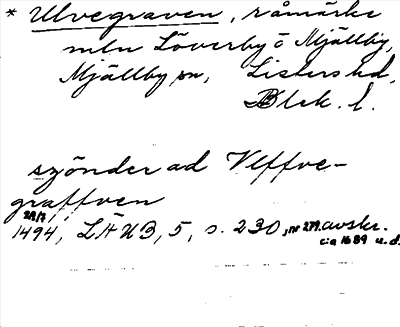 * Ulvegraven, råmärke
mln Löverby o Mjällby,
Mjällby sn, Listers hd,
Blek. l.
szönder ad Vlffve-
graffven
29/7
1494, LÄUB, 5, s. 230, nr 279. avskr.
ca 1689 u.d.